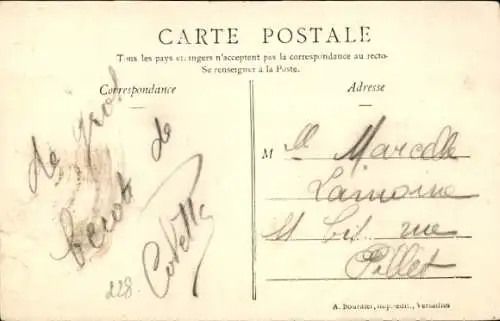 CARTE POSTALE
Tous les pays étrangers n'acceptent pas la correspondance au recto-
Se renseigner à la Poste.
Correspondance
Adresse
de
de
228.
M ll Marcelle
Lamoine
rue
Pillet
A. Bourdier, imp.-édit., Versailles